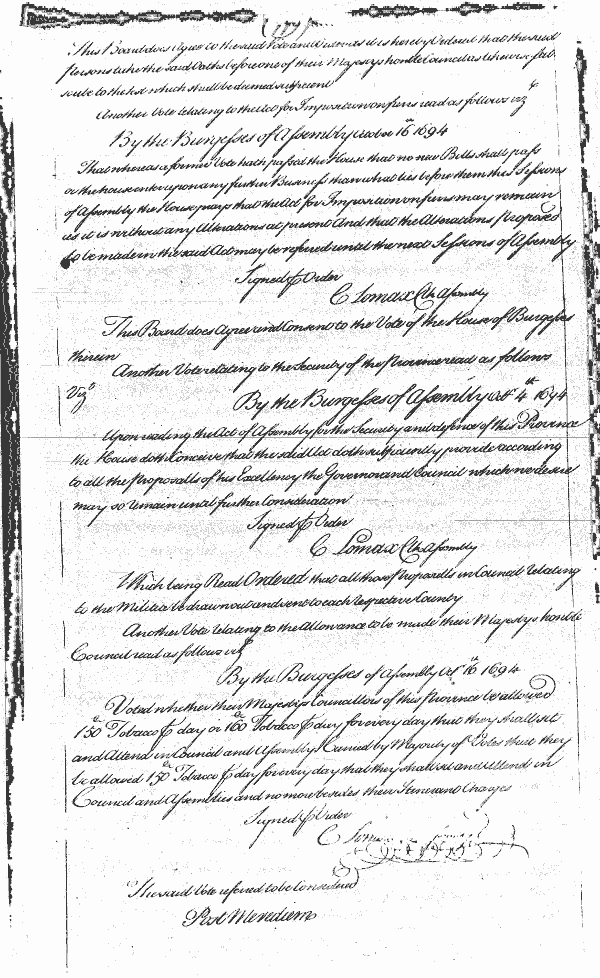 This Board does Agree to the said Vote and it is hereby Ordered that the said
Persons take the said Oaths before one of their Majestys honble Council as likewise Sub-
scribe to the test which shall be deemed sufficient
Another Vote relating to the Act for Imposition on furrs read as follows vizt
By the Burgesses of Assembly 16th 1694
That whereas a former Vote hath passed the House that no new Bills shall pass
or the house enter upon any further Business than what lies before them this Sessions
of Assembly the House prays that the Act for Imposition on furrs may remain
as it is without any Alterations at present And that the Alterations proposed
to be made in the said Act may be refered untill the next Sessions of Assembly
Signed p Order
C Lomax Clk Assembly
This Board does Agree and Consent to the Vote of the House of Burgesses
therein
Another Vote relating to the Security of the Province read as follows
Vizt
By the Burgesses of Assembly Octr 4th 1694
Upon reading the Act of Assembly for the Security and defence of this Province
the House doth Conceive that the said Act doth sufficiently provide according
to all the Proposalls of his Excellency the Governor and Council which we desire
may so remain until further Consideration
Signed p Order
C Lomax Clk Assembly
Which being Read Ordered that all those Proposalls in Council relating
to the Militia be drawn out and sent to each respective County
Another Vote relating to the Allowance to be made their Majestys honble
Council read as follows vizt
By the Burgesses of Assembly Octr 16th 1694
Voted whether their Majestys Councillors of this Province be allowed
150 Tobacco p day or 160 Tobacco p day for every day that they shall sit
and Attend in Council and Assembly Carried by Majority of Votes that they
be allowed 150 Tobacco p day for every day that they shall sit and Attend in
Council and Assemblies and no more besides their Itinerant Charges
Signed p Order
C
The said Vote referred to be Considered
Post Meridiem